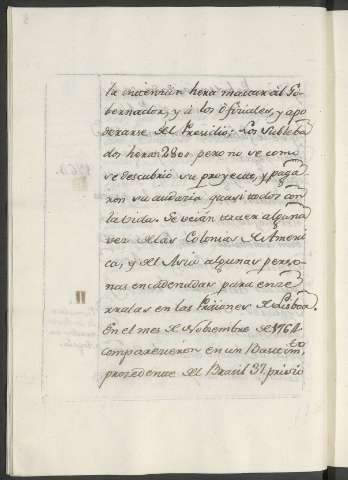 la intencion hera matar al Go-
bernador, y à los oficiales, y apo
derarse del Presidio; los Subleba
dos heran 280 pero no se como
se descubrió su proyecto, y paga
ron su audacia quasi todos con
la vida. Se veían traer alguna
vez de las Colonias de Ameri
ca, y del Asia algunas perso
nas encadenadas para encer
rralas en las Prisiones de Lisboa.
En el mes de Nobiembre de 1764
comparecieron en un Bastim.to
prozedente del Brasil 37 prisio